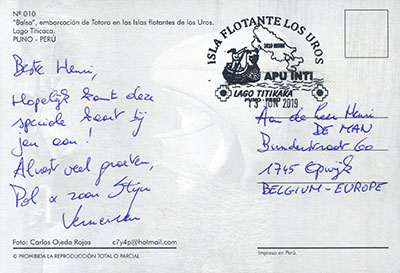 Nº 010
"Balsa", embarcación de Totora en las Islas flotantes de los Uros.
Lago Titicaca.
PUNO - PERÚ
ISLA FLOTANTE LOS UROS
APU INTI
LAGO TITIKAKA
PUNO - PERU
JUN 2019
Beste Henri,
Hopelijk komt deze
speciale kaart bij
jou aan!
Alvast veel groeten,
Pol & zoon Stijn
Aan de heer Henri
DE MAN
60
1745 Opwijk
BELGIUM - EUROPE
Foto: Carlos Ojeda Rojas c7y4p@hotmail.com
© PROHIBIDA LA REPRODUCCIÓN TOTAL O PARCIAL
Impreso en Perú.